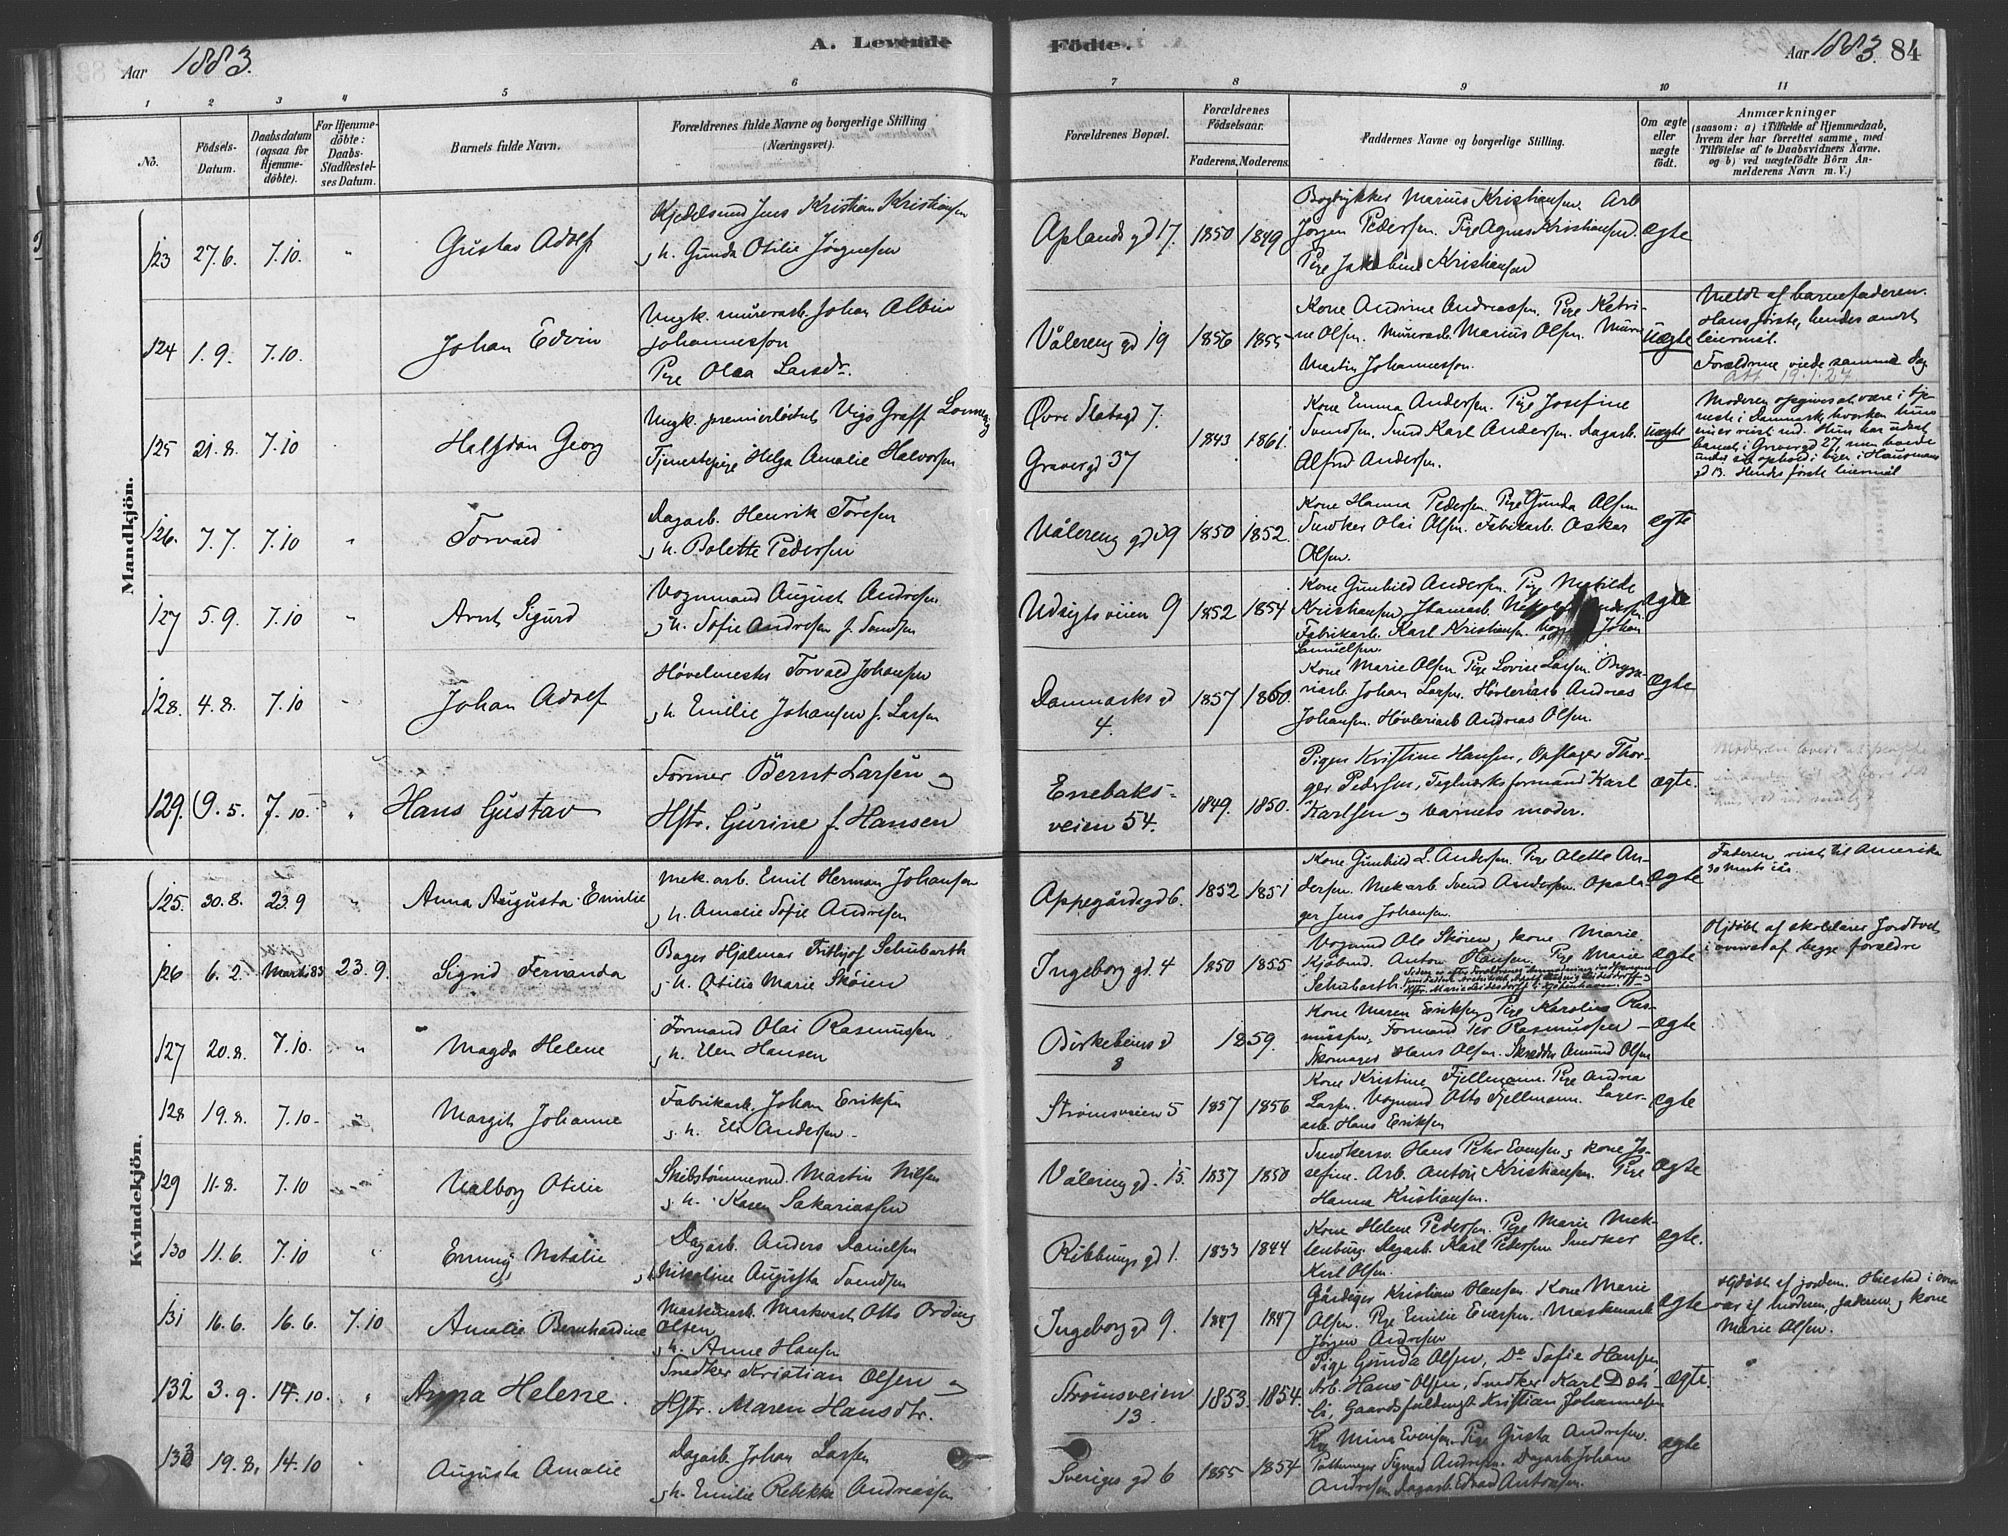 Aar 1883.
A. Levende
Födte.
Aar 1883. 84
1 2 3 4 5 6 7 8 9 10 11
No.
Födsels-Datum.
Daabsdatum (ogsaa for Hjemme-döbte).
For Hjemme-döbte: Daabs-Stadfæstel-ses Datum.
Barnets fulde Navn.
Forældrenes fulde Navne og borgerlige Stilling (Næringsvei).
Forældrenes Bopæl.
Forældrenes Födselsaar.
Faderens. Moderens.
Faddernes Navne og borgerlige Stilling.
Om ægte eller uægte födt.
Anmærkninger
(saasom: a) i Tilfælde af Hjemmedaab,
hvem der har forrettet samme, med
Tilföielse af to Daabsvidners Navne,
og b) ved uægtefödte Börn An-
melderens Navn m. V.)
Mandkjön.
123 27.6. 7.10. " Gustav Adolf
Kjedelsmed Jens Kristian Kristiansen
og h. Gunda Otilie Jørgensen
Aplands gd 17. 1850 1849
Bogtrykker Marius Kristiansen. Arb
Jørgen Pedersen. Pige Agnes Kristiansen.
Pige Jakobine Kristiansen
ægte
124 1.9. 7.10. Johan Edvin
Ungk. murerarb. Johan Albin
Johannesson
Pige Olea Larsdr.
Vålereng gd 19 1856 1855
Kone Andrine Andreassen. Pige Katri-
ne Olsen. Murerarb. Marius Olsen. Murer
Martin Johannesson.
uægte
Meldt af barnefaderen.
Hans første, hendes andet
leiermål.
Forældrene viede samme dag.
Att. 19.1.27
125 21.8. 7.10 Halfdan Georg
Ungk. premierløitnt Vigo Graff
Tjenestepige Helga Amalie Halvorsen
Øvre Slotsgd 7.
Gravergd 37
1843 1861
Kone Emma Andersen. Pige Josefine
Svendsen. Smed Karl Andersen. Dagarb.
Alfred Andersen.
uægte
Moderen opgives at være i tje-
neste i Danmark, hvorhen hun
er reist ud. Hun har
barnet i Gravergd 27 men havde
ophold i Hausmans
gd 13. Hendes første leiermål
126. 7.7. 7.10 " Torvald
Dagarb. Henrik Toresen
og h. Bolette Pedersen
Vålereng gd 29 1850 1852.
Kone Hanna Pedersen. Pige Gunda Olsen
Snedker Olai Olsen. Fabrikarb. Oskar
Olsen.
ægte
127 5.9. 7.10 " Arnt Sigurd
Vognmand August Andresen
og h. Sofie Andresen f. Svendsen
Udsigtsveien 9 1852 1854
Kone Gunhild Andersen. Pige Matilde
Kristiansen
Fabrikarb. Karl Kristiansen. Johan
Samuelsen.
ægte
128. 4.8. 7.10 Johan Adolf
Høvelmester Torvald Johansen
og h. Emilie Johansen f. Larsen
Danmarks gd
4.
1857 1860.
Kone Marie Olsen Pige Lovise Larsen. Brygge-
riarb. Johan Larsen. Høvleriarb Andreas
Johansen. Høvleriarb Andreas Olsen.
ægte
129. 9.5. 7.10. " Hans Gustav
Former Bernt Larsen og
Hstr. Gurine f. Hansen
Enebaks-
veien 54.
1849. 1850.
Pigen Kristine Hansen, Opslager Thor-
ger Pedersen, Teglværksformand Karl
Karlsen og barnets moder.
ægte.
Kvindekjön.
125. 30.8. 23.9 " Anna Augusta Emilie
Mek. arb. Emil Herman Johansen
og h. Amalie Sofie Andresen
Oppegårds gd 6. 1852 1851
Kone Gunhild L. Andersen. Pige Alette An-
dersen. Mek arb. Svend Andersen. Opsla-
ger Jens Johansen.
ægte
Faderen reist til Amerika
30 marts iår.
126 6.2. Marts 83 23.9. Sigrid Fernanda
Bager Hjalmar Fritjof Schubarth
og h. Otilie Marie Skøien
Ingeborg gd. 4 1850 1855
Vognmd Ole Skøien og kone Marie
Kjøbmd. Anton Hansen. Pige Marie
Schubarth.
ægte
Hjdøbt af skolelærer Jordtvedt
i overvær af begge forældre
127 20.8. 7.10. " Magda Helene
Formand Olai Rasmussen
og h. Elen Hansen
Birkebeinergd
8
1859.
Kone Maren Eriksen Pige Karoline Ras-
mussen. Formand Per Rasmussen
Skomager Hans Olsen. Skrædder Amund Olsen
ægte
128 19.8. 7.10. Margit Johanne
Fabrikarb. Johan Eriksen
og h. Eli Andersen
Strømsveien 5 1857 1856
Kone Kristine Fjellmann. Pige Andrea
Larsen. Vognmd Otto Fjellmann. Lager-
arb. Hans Eriksen
ægte
129 11.8. 7.10 Valborg Otilie
Skibstømmermd. Martin Nilsen
og h. Karen Sakariassen
Vålereng gd. 15. 1837 1850
Snedkersv. Hans Peter Evensen og kone Jo-
sefine. Arb. Anton Kristiansen. Pige
Hanna Kristiansen.
ægte
130 11.6. 7.10 " Emmy Natalie
Dagarb. Anders Danielsen
og h. Nikoline Augusta Svendsen
Ribbungs gd 1. 1833 1844
Kone Helene Pedersen. Pige Marie Mek-
lenburg. Dagarb. Karl Pedersen Snedker
Karl Olsen.
ægte.
131 16.6. 16.6. 7.10 Amalie Bernhardine
Maskinarb. Markvart Otto Ording
Olsen
og h. Anne Hansen
Ingeborg gd 9. 1847 1847
Gårdeier Kristian Hansen. Kone Marie
Olsen. Pige Emilie Evensen. Maskinarb
Jørgen Andresen
ægte
Hjdøbt af jordem. Huestad i over-
vær af moderen, faderen og kone
Marie Olsen.
132 3.9. 14.10. " Anna Helene.
Snedker Kristian Olsen og
Hstr. Maren Hansdtr.
Strømsveien
13.
1853. 1854.
Pige Gunda Olsen, Do Sofie Hansen,
Arb. Hans Olsen, Snedker Karl Døh-
li, Gaardsfuldmægt Kristian Johannesen
ægte.
133 19.8. 14.10 Augusta Amalie
Dagarb. Johan Larsen
og h. Emilie Rebekka Andreassen
Sveriges gd 6 1855 1854
Pige Mina Evensen. Pige Gusta Andresen.
Pottemager Sigvard Andresen. Dagarb Johan
Andresen Dagarb. Edvard Antonsen.
ægte